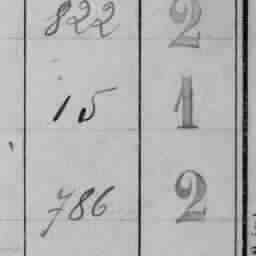 822 2
15 1
786 2